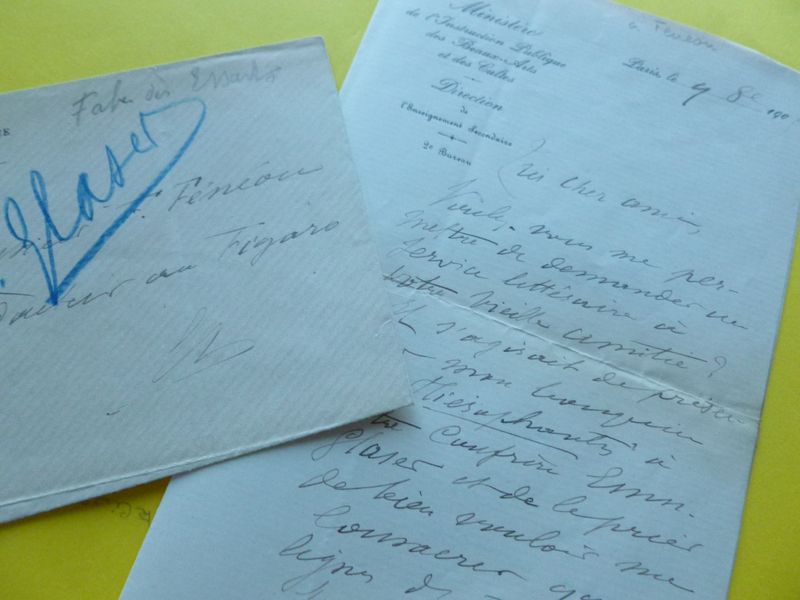 Fabre des Essarts
Glaser
Fénéon
au Figaro
à Fénéon
Ministère
de l'Instruction Publique
des Beaux-Arts
et des Cultes
Direction
de
l'Enseignement Secondaire
2e Bureau
Paris, le 9 8e 190
Mon cher ami,
Veuillez-vous me per-
mettre de demander un
service littéraire à
votre vieille amitié ?
Il s'agirait de présen-
mon bouquin
Hiérophantes à
confrère Emm.
Glaser et de le prier
de bien vouloir me
consacrer
lignes de